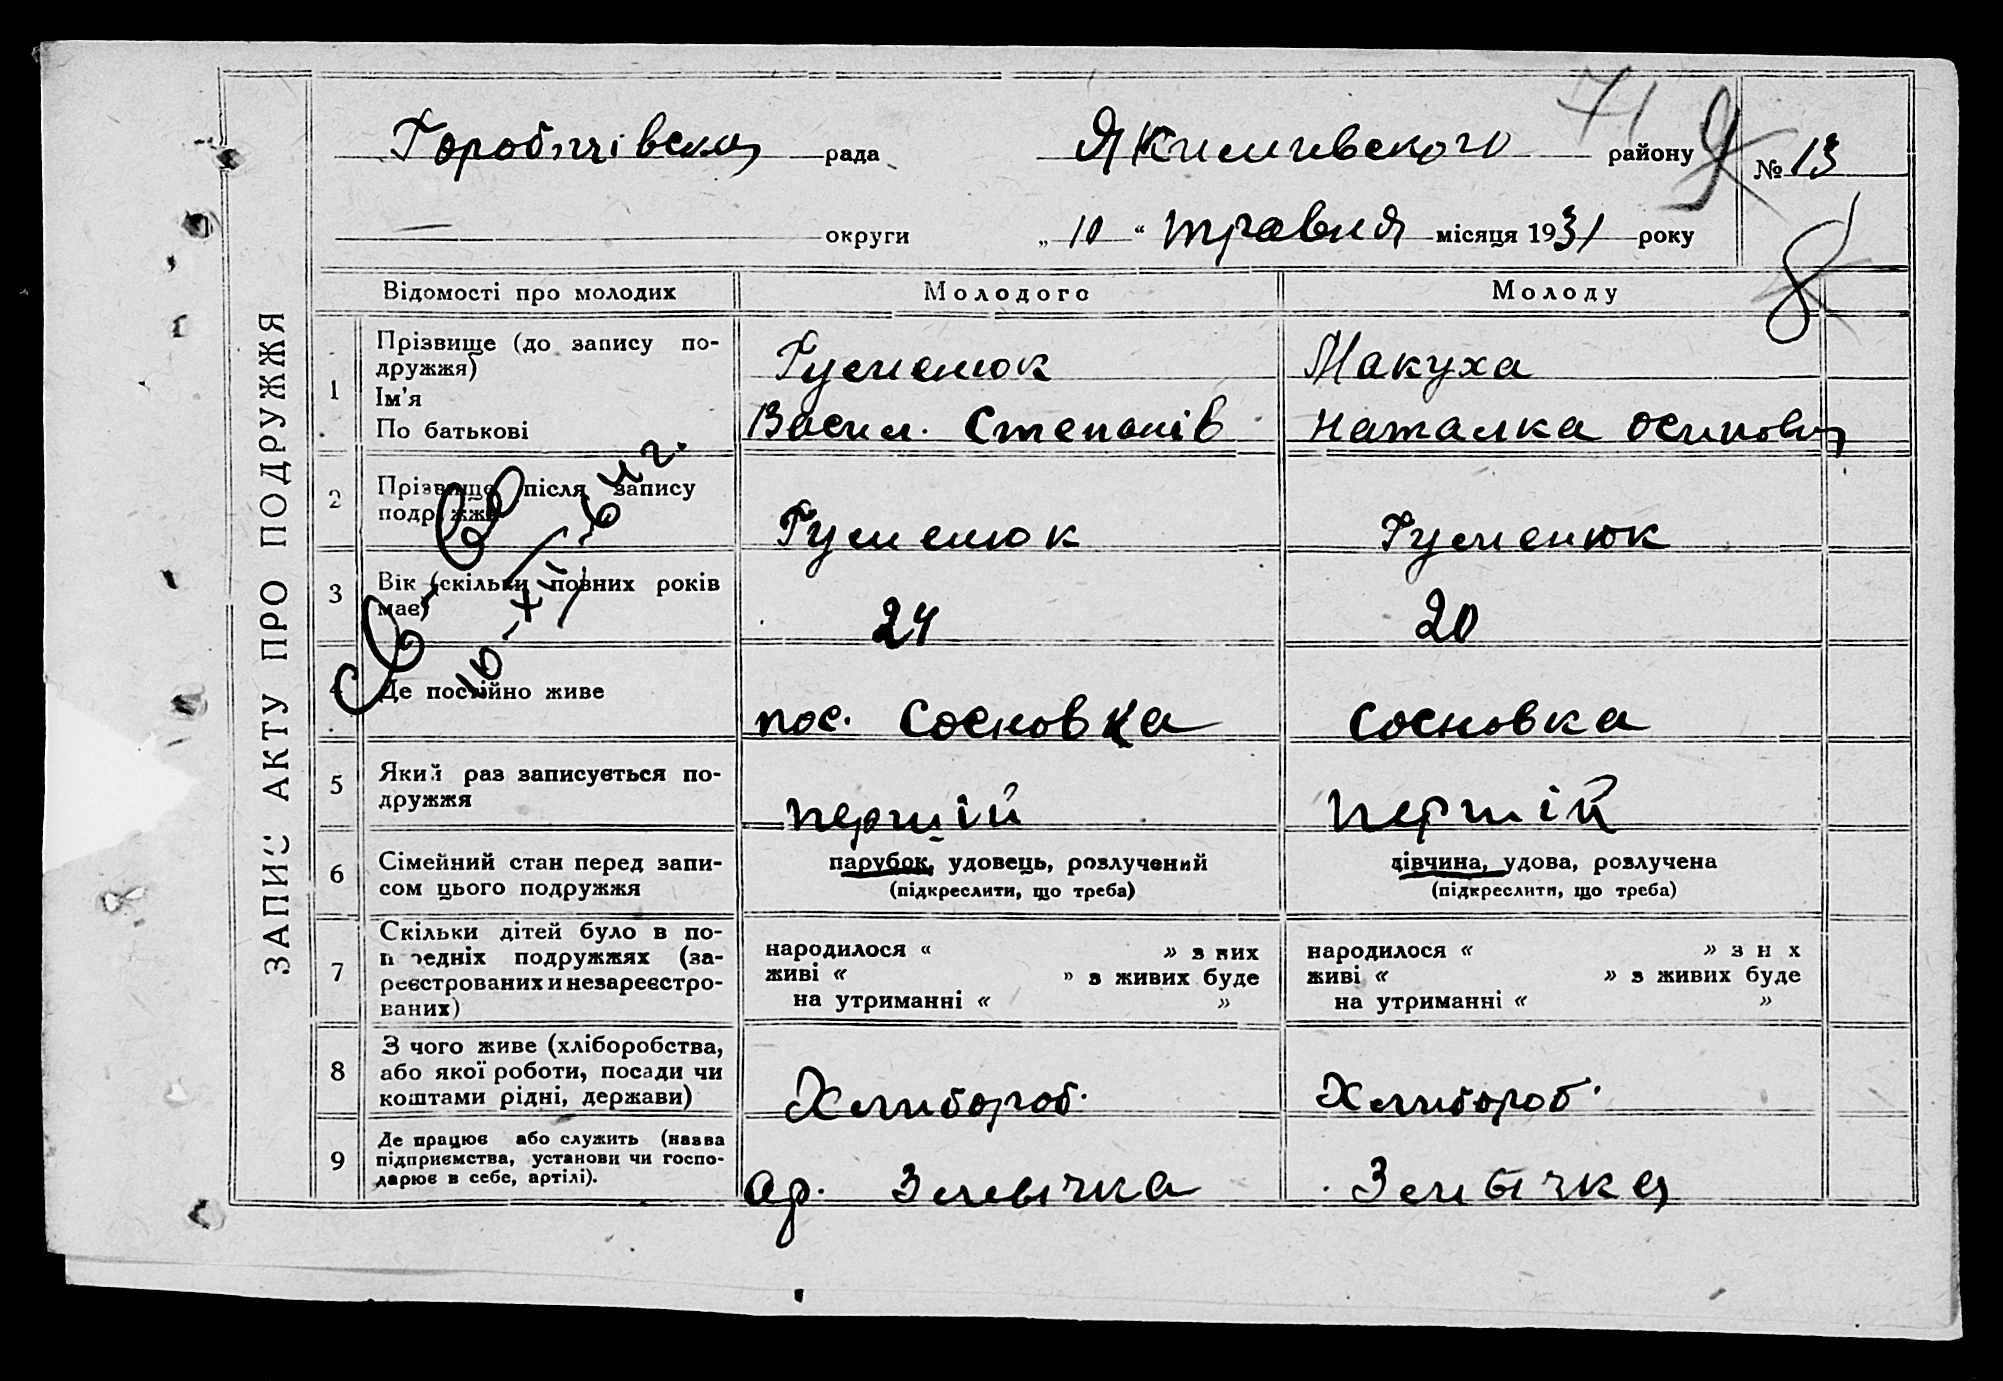 71
Горобчівська рада Якимівського району № 13
округи „10“ травня місяця 1931 року
8
ЗАПИС АКТУ ПРО ПОДРУЖЖЯ
Відомості про молодих Молодого Молоду
1 Прізвище (до запису по-
дружжя)
Ім'я
По батькові
Гуменюк Макуха
Васил. Степанів Наталка Осиповн
2 Прізвище після запису
подружжя
Гуменюк Гуменюк
3 Вік (скільки повних років
має)
24 20
10-XII-64 г.
4 Де постійно живе
пос. Сосновка Сосновка
5 Який раз записується по-
дружжя
першій першій
6 Сімейний стан перед запи-
сом цього подружжя
парубок, удовець, розлучений
(підкреслити, що треба)
дівчина, удова, розлучена
(підкреслити, що треба)
7 Скільки дітей було в по-
передніх подружжях (за-
реєстрованих и незареєстро-
ваних)
народилося « » з них
живі « » з живих буде
на утриманні « »
народилося « » з н х
живі « » з живих буде
на утриманні « »
8 З чого живе (хліборобства,
або якої роботи, посади чи
коштами рідні, держави)
Хлибороб. Хлибороб.
9 Де працює або служить (назва
підприємства, установи чи госпо-
дарює в себе, артілі).
ар. Змычка Змычка